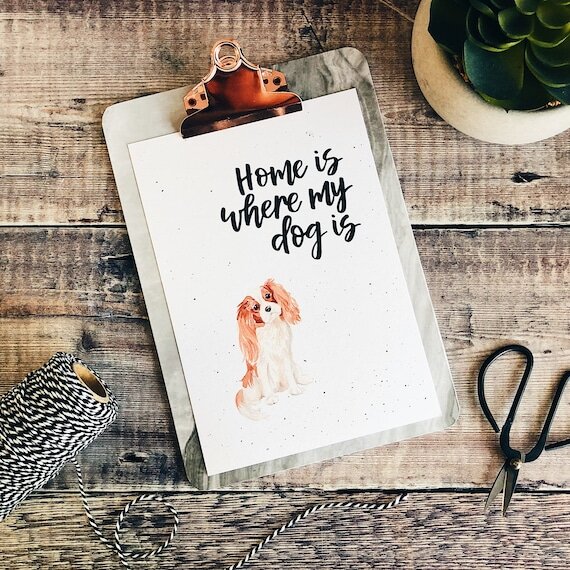 Home is
where my
dog is